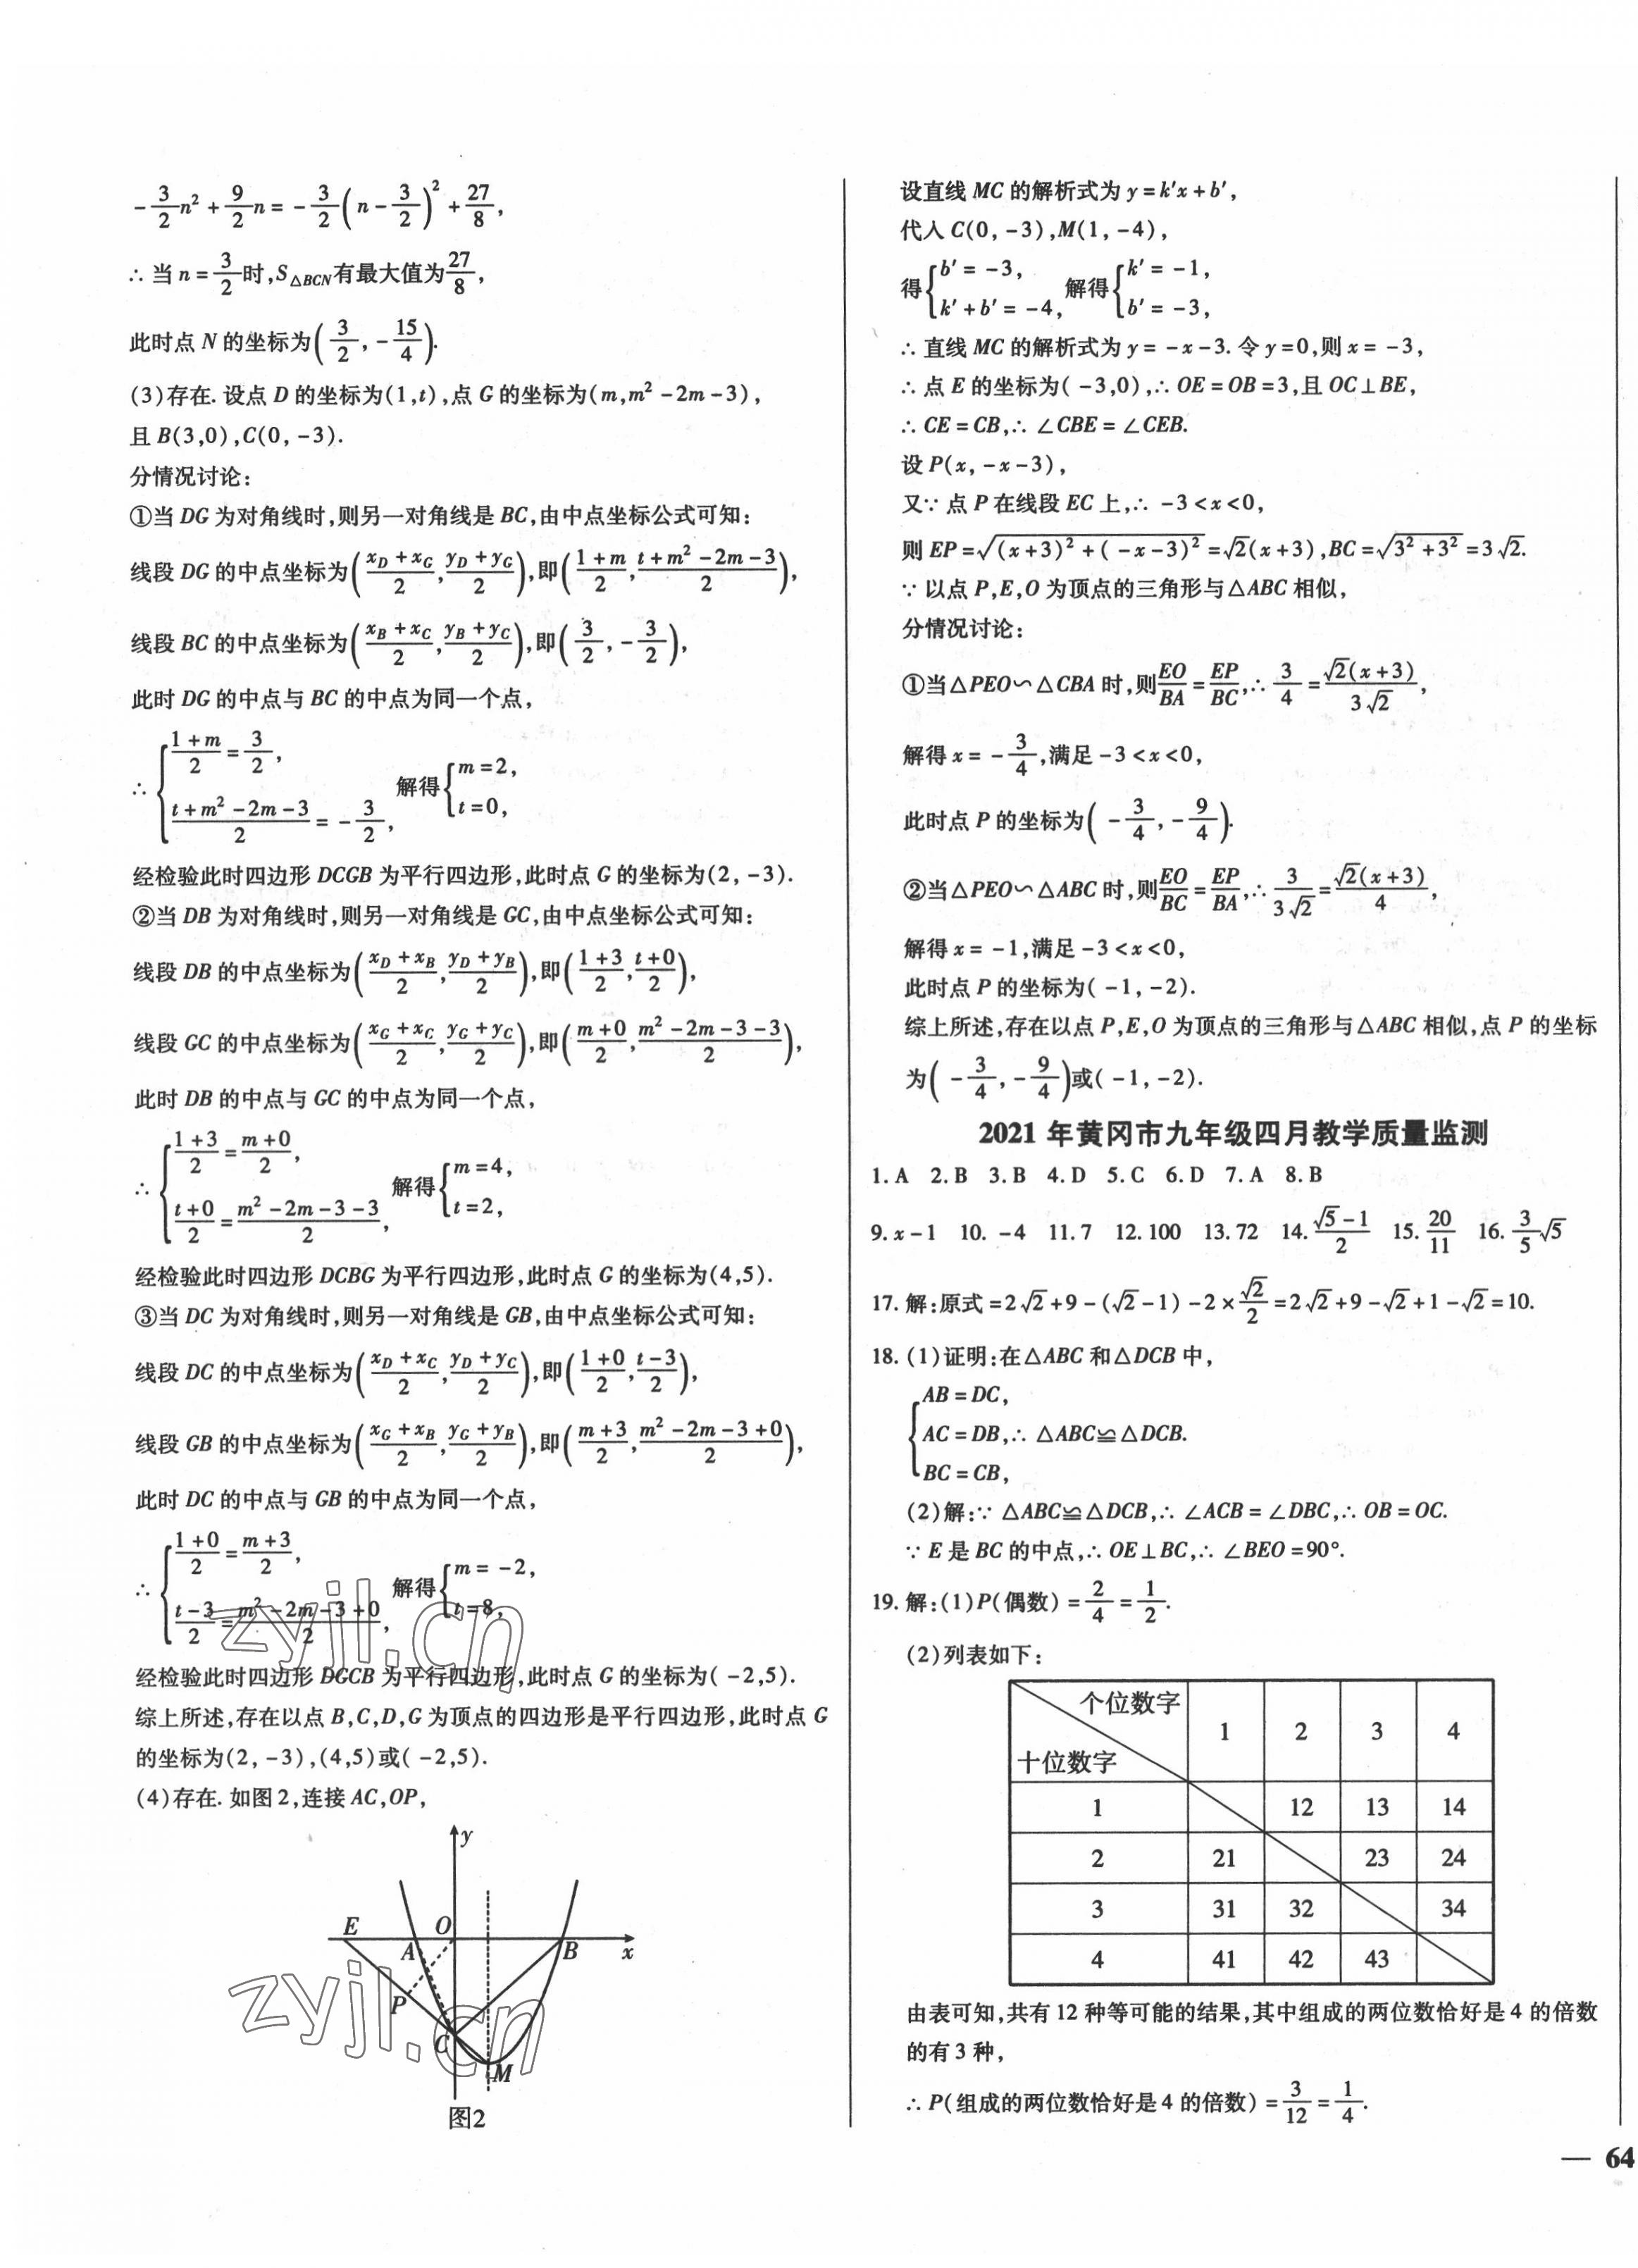 -\frac{3}{2}n²+\frac{9}{2}n=-\frac{3}{2}(n-\frac{3}{2})²+\frac{27}{8},
∴当n=\frac{3}{2}时,S△BCN有最大值为\frac{27}{8},
此时点N的坐标为(\frac{3}{2},-\frac{15}{4}).
(3)存在.设点D的坐标为(1,t),点G的坐标为(m,m²-2m-3),
且B(3,0),C(0,-3).
分情况讨论:
①当DG为对角线时,则另一对角线是BC,由中点坐标公式可知:
线段DG的中点坐标为(\frac{x_D+x_G}{2},\frac{y_D+y_G}{2}),即(\frac{1+m}{2},\frac{t+m²-2m-3}{2}),
线段BC的中点坐标为(\frac{x_B+x_C}{2},\frac{y_B+y_C}{2}),即(\frac{3}{2},-\frac{3}{2}),
此时DG的中点与BC的中点为同一个点,
∴{\frac{1+m}{2}=\frac{3}{2}, \frac{t+m²-2m-3}{2}=-\frac{3}{2}, 解得{m=2, t=0,
经检验此时四边形DCGB为平行四边形,此时点G的坐标为(2,-3).
②当DB为对角线时,则另一对角线是GC,由中点坐标公式可知:
线段DB的中点坐标为(\frac{x_D+x_B}{2},\frac{y_D+y_B}{2}),即(\frac{1+3}{2},\frac{t+0}{2}),
线段GC的中点坐标为(\frac{x_G+x_C}{2},\frac{y_G+y_C}{2}),即(\frac{m+0}{2},\frac{m²-2m-3-3}{2}),
此时DB的中点与GC的中点为同一个点,
∴{\frac{1+3}{2}=\frac{m+0}{2}, \frac{t+0}{2}=\frac{m²-2m-3-3}{2}, 解得{m=4, t=2,
经检验此时四边形DCBG为平行四边形,此时点G的坐标为(4,5).
③当DC为对角线时,则另一对角线是GB,由中点坐标公式可知:
线段DC的中点坐标为(\frac{x_D+x_C}{2},\frac{y_D+y_C}{2}),即(\frac{1+0}{2},\frac{t-3}{2}),
线段GB的中点坐标为(\frac{x_G+x_B}{2},\frac{y_G+y_B}{2}),即(\frac{m+3}{2},\frac{m²-2m-3+0}{2}),
此时DC的中点与GB的中点为同一个点,
∴{\frac{1+0}{2}=\frac{m+3}{2}, \frac{t-3}{2}=\frac{m²-2m-3+0}{2}, 解得{m=-2, t=8,
经检验此时四边形DGCB为平行四边形,此时点G的坐标为(-2,5).
综上所述,存在以点B,C,D,G为顶点的四边形是平行四边形,此时点G
的坐标为(2,-3),(4,5)或(-2,5).
(4)存在.如图2,连接AC,OP,
y
E O
A B x
P
C
M
图2
zyjl.cn
zyjl.cn
设直线MC的解析式为y=k'x+b',
代入C(0,-3),M(1,-4),
得{b'=-3, k'+b'=-4, 解得{k'=-1, b'=-3,
∴直线MC的解析式为y=-x-3.令y=0,则x=-3,
∴点E的坐标为(-3,0),∴OE=OB=3,且OC⊥BE,
∴CE=CB,∴∠CBE=∠CEB.
设P(x,-x-3),
又∵点P在线段EC上,∴-3<x<0,
则EP=\sqrt{(x+3)²+(-x-3)²}=√2(x+3),BC=\sqrt{3²+3²}=3√2.
∵以点P,E,O为顶点的三角形与△ABC相似,
分情况讨论:
①当△PEO∽△CBA时,则\frac{EO}{BA}=\frac{EP}{BC},∴\frac{3}{4}=\frac{√2(x+3)}{3√2},
解得x=-\frac{3}{4},满足-3<x<0,
此时点P的坐标为(-\frac{3}{4},-\frac{9}{4}).
②当△PEO∽△ABC时,则\frac{EO}{BC}=\frac{EP}{BA},∴\frac{3}{3√2}=\frac{√2(x+3)}{4},
解得x=-1,满足-3<x<0,
此时点P的坐标为(-1,-2).
综上所述,存在以点P,E,O为顶点的三角形与△ABC相似,点P的坐标
为(-\frac{3}{4},-\frac{9}{4})或(-1,-2).
2021年黄冈市九年级四月教学质量监测
1.A 2.B 3.B 4.D 5.C 6.D 7.A 8.B
9.x-1 10.-4 11.7 12.100 13.72 14.\frac{√5-1}{2} 15.\frac{20}{11} 16.\frac{3}{5}√5
17.解:原式=2√2+9-(√2-1)-2×\frac{√2}{2}=2√2+9-√2+1-√2=10.
18.(1)证明:在△ABC和△DCB中,
{AB=DC,
AC=DB,∴△ABC≌△DCB.
BC=CB,
(2)解:∵△ABC≌△DCB,∴∠ACB=∠DBC,∴OB=OC.
∵E是BC的中点,∴OE⊥BC,∴∠BEO=90°.
19.解:(1)P(偶数)=\frac{2}{4}=\frac{1}{2}.
(2)列表如下:
个位数字 十位数字 1 2 3 4
1 12 13 14
2 21 23 24
3 31 32 34
4 41 42 43
由表可知,共有12种等可能的结果,其中组成的两位数恰好是4的倍数
的有3种,
∴P(组成的两位数恰好是4的倍数)=\frac{3}{12}=\frac{1}{4}.
— 64